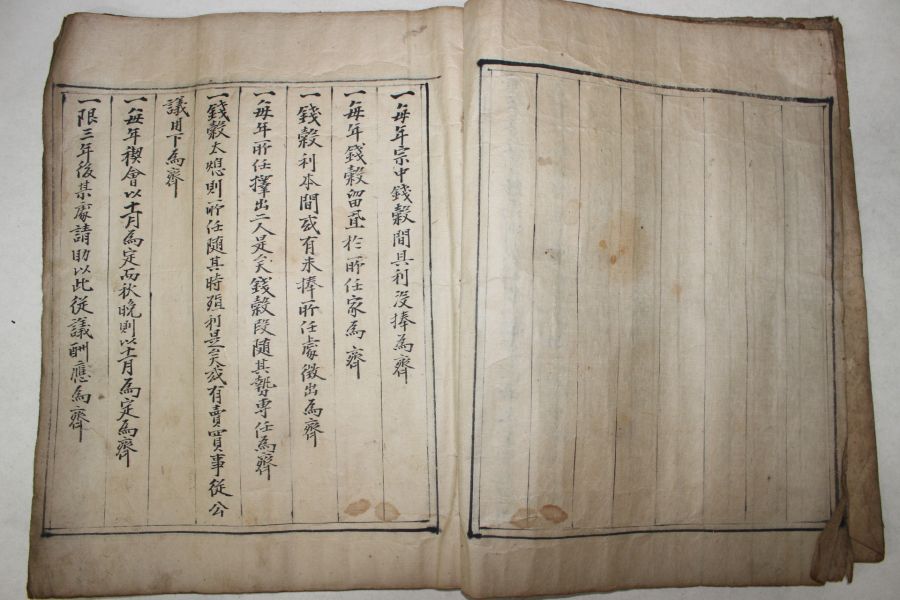 一每年宗中錢穀間具利沒捧爲齊
一每年錢穀留置於所任家爲齊
一錢穀利本間或有未捧所任處徵出爲齊
一每年所任擇出二人是矣錢穀段隨其勢專任爲齊
一錢穀太㥘則所任隨其時殖利是矣或有賣買事從公
議用下爲齊
一每年禊會以十月爲定而秋晩則以十一月爲定爲齊
一限三年後某處請助以此從議酬應爲齊